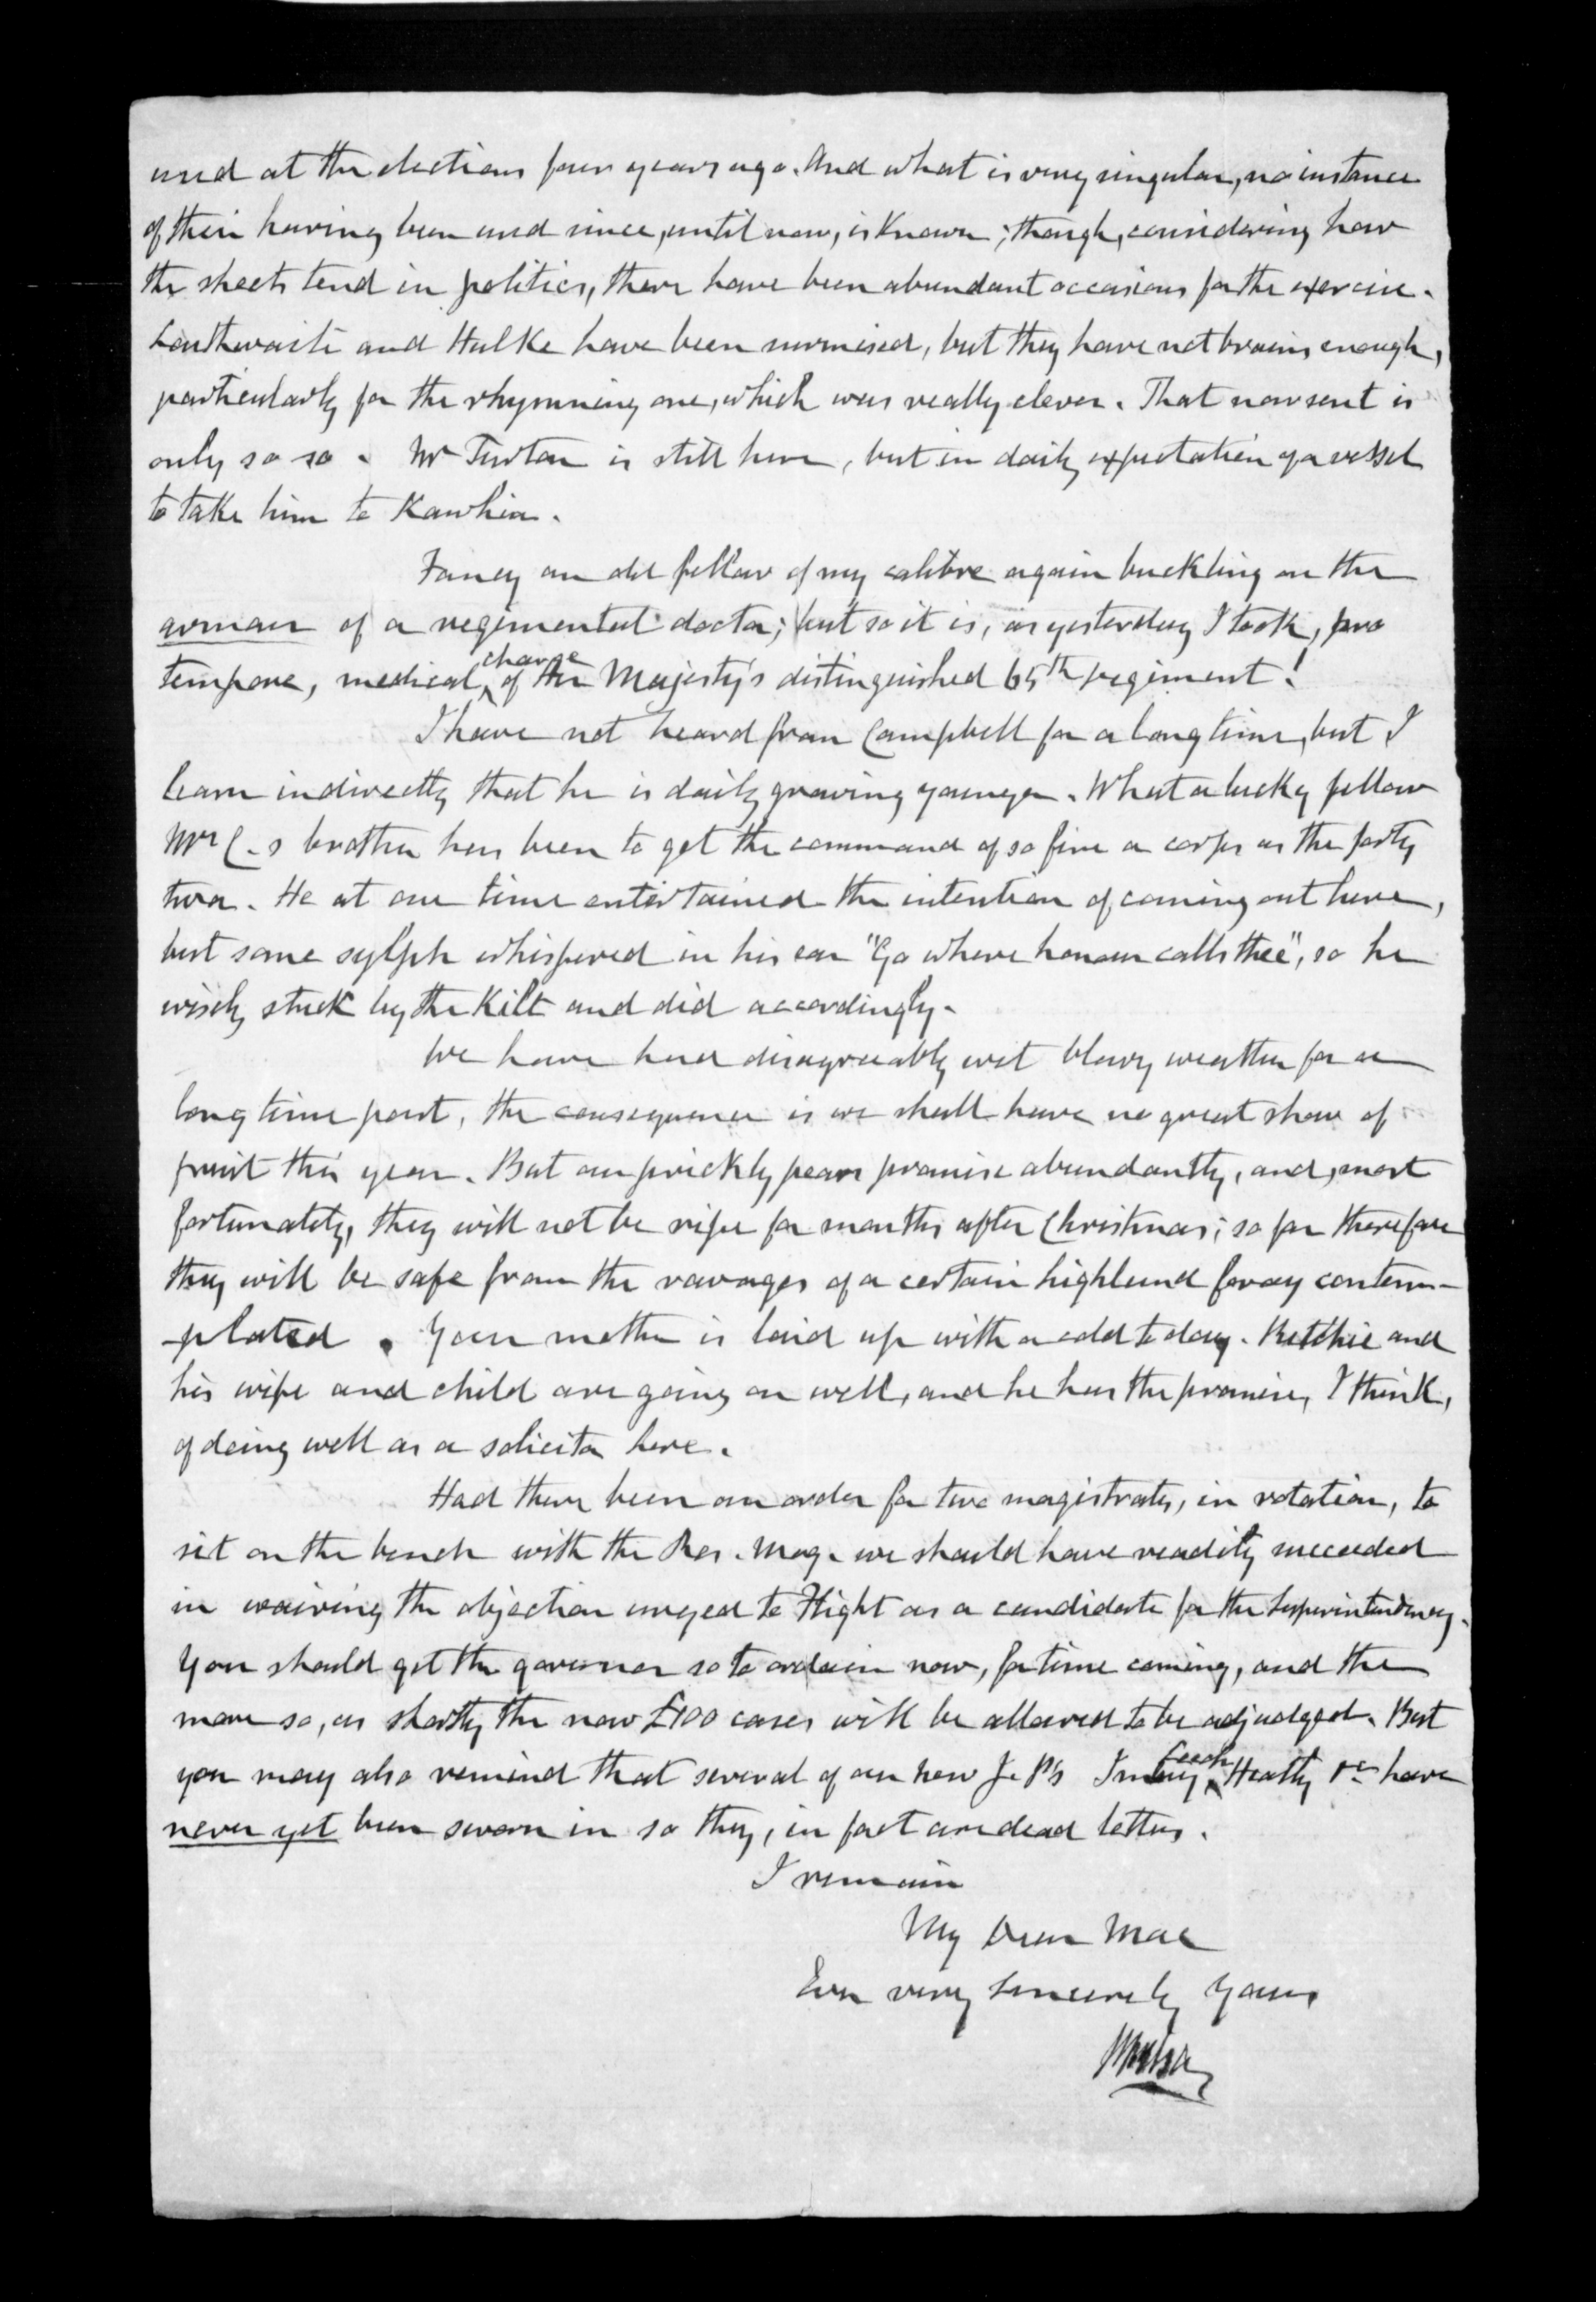 used at the elections four years ago. And what is very singular, no instance
of their having been used since, until now, is known; though, considering how
the sheets tend in politics, there have been abundant occasions for the exercise.
Louthwaite and Hulke have been surmised, but they have not brains enough,
particularly for the rhymning one, which was really clever. That now sent is
only so so. Mr Turton is still here, but in daily expectation of a vessel
to take him to Kawhia.
Fancy an old fellow of my calibre again buckling on the
armour of a regimental doctor; but so it is, as yesterday I took, pro
tempore, medical charge of Her Majesty's distinguished 65th regiment!
I have not heard from Campbell for a long time, but I
learn indirectly that he is daily growing younger. What a lucky fellow
Mrs C-s brother has been to get the command of so fine a corps as the forty
two. He at one time entertained the intention of coming out here,
but some sylph whispered in his ear "Go where honour calls thee", so he
wisely stuck by the Kilt and did accordingly.
We have had disagreeably wet blowy weather for a
long time past, the consequence is we shall have no great show of
fruit this year. But our prickly pears promise abundantly, and, most
fortunately, they will not be ripe for months after Christmas; so far therefore
they will be safe from the ravages of a certain highland foray contem-
-plated. Your mother is laid up with a cold to day. Ritchie and
his wife and child are going on well, and he has the promise, I think,
of doing well as a solicitor here.
Had there been an order for two magistrates, in rotation, to
sit on the bench with the Res. Mag. we should have readily succeeded
in waiving the objection urged to Flight as a candidate for the Superintendency.
You should get the governor so to ordain now, for time coming, and the
more so, as shortly the new £100 cases will be allowed to be adjudged. But
you may also remind that several of our new J. P's Imlay, Leech, Heatly &c have
never yet been sworn in so they, in fact are dead letters.
I remain
My Dear Mac
Ever very sincerely yours